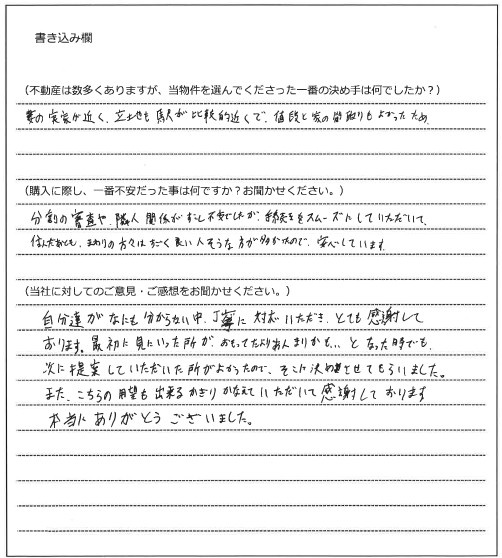 書き込み欄
(不動産は数多くありますが、当物件を選んでくださった一番の決め手は何でしたか?)
妻の実家が近く、立地も駅が比較的近くて、値段と家の間取りもよかったため
(購入に際し、一番不安だった事は何ですか?お聞かせください。)
分割の審査や、隣人関係が少し不安でしたが、手続きをスムーズにしていただいて、
住んだあとも、まわりの方々はすごく良い人そうな方が多かったので、安心しています。
(当社に対してのご意見・ご感想をお聞かせください。)
自分達がなにも分からない中、丁寧に対応いただき、とても感謝して
おります。最初に見にいった所が、おもってたよりあんまりかも… となった時でも、
次に提案していただいた所がよかったので、そこに決めさせてもらいました。
また、こちらの希望も出来るかぎりかなえていただいて感謝しております
本当にありがとうございました。